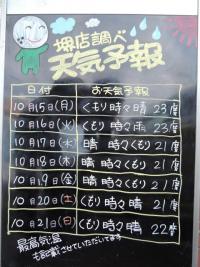 堺店調べ
天気予報
日付 お天気予報
10月15日(月) くもり時々晴 23度
10月16日(火) くもり時々雨 23度
10月17日(水) 晴時々くもり 21度
10月18日(木) 晴時々くもり 21度
10月19日(金) 晴時々くもり 21度
10月20日(土) くもり時々晴 21度
10月21日(日) くもり時々晴 22度
最高気温
も記載させていただいてます